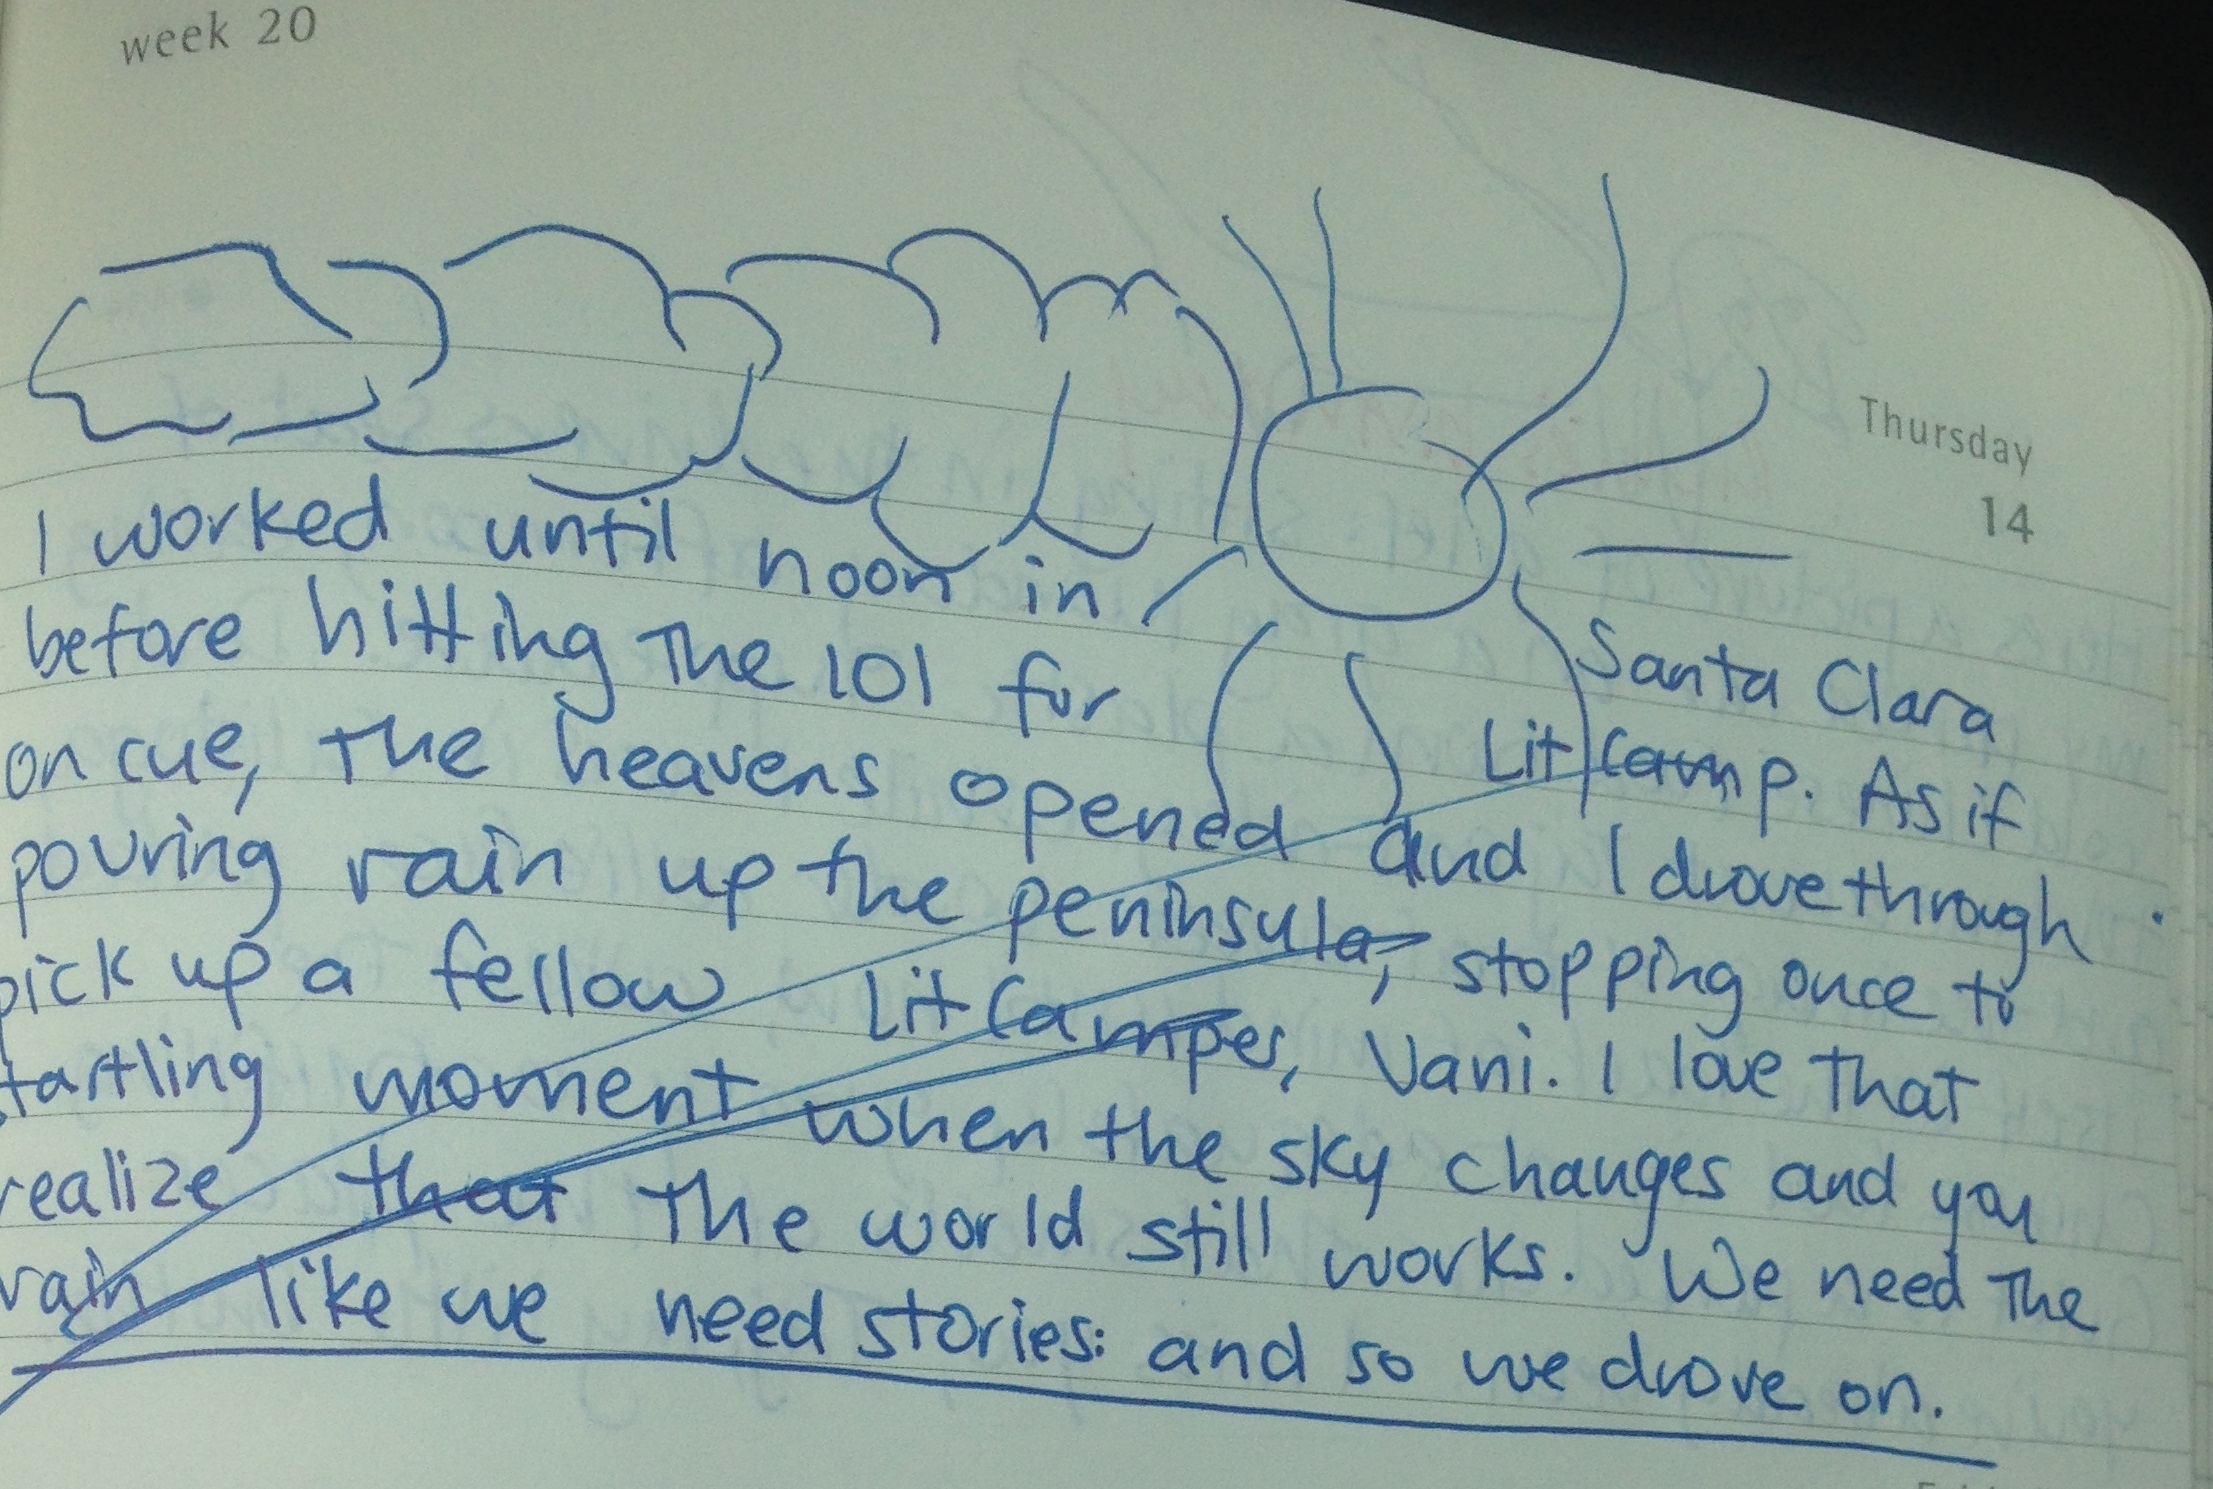 week 20
Thursday
14
I worked until noon in Santa Clara
before hitting the 101 for Lit Camp. As if
on cue, the heavens opened and I drove through
pouring rain up the peninsula, stopping once to
pick up a fellow Lit Camper, Vani. I love that
startling moment when the sky changes and you
realize that the world still works. We need the
rain like we need stories: and so we drove on.